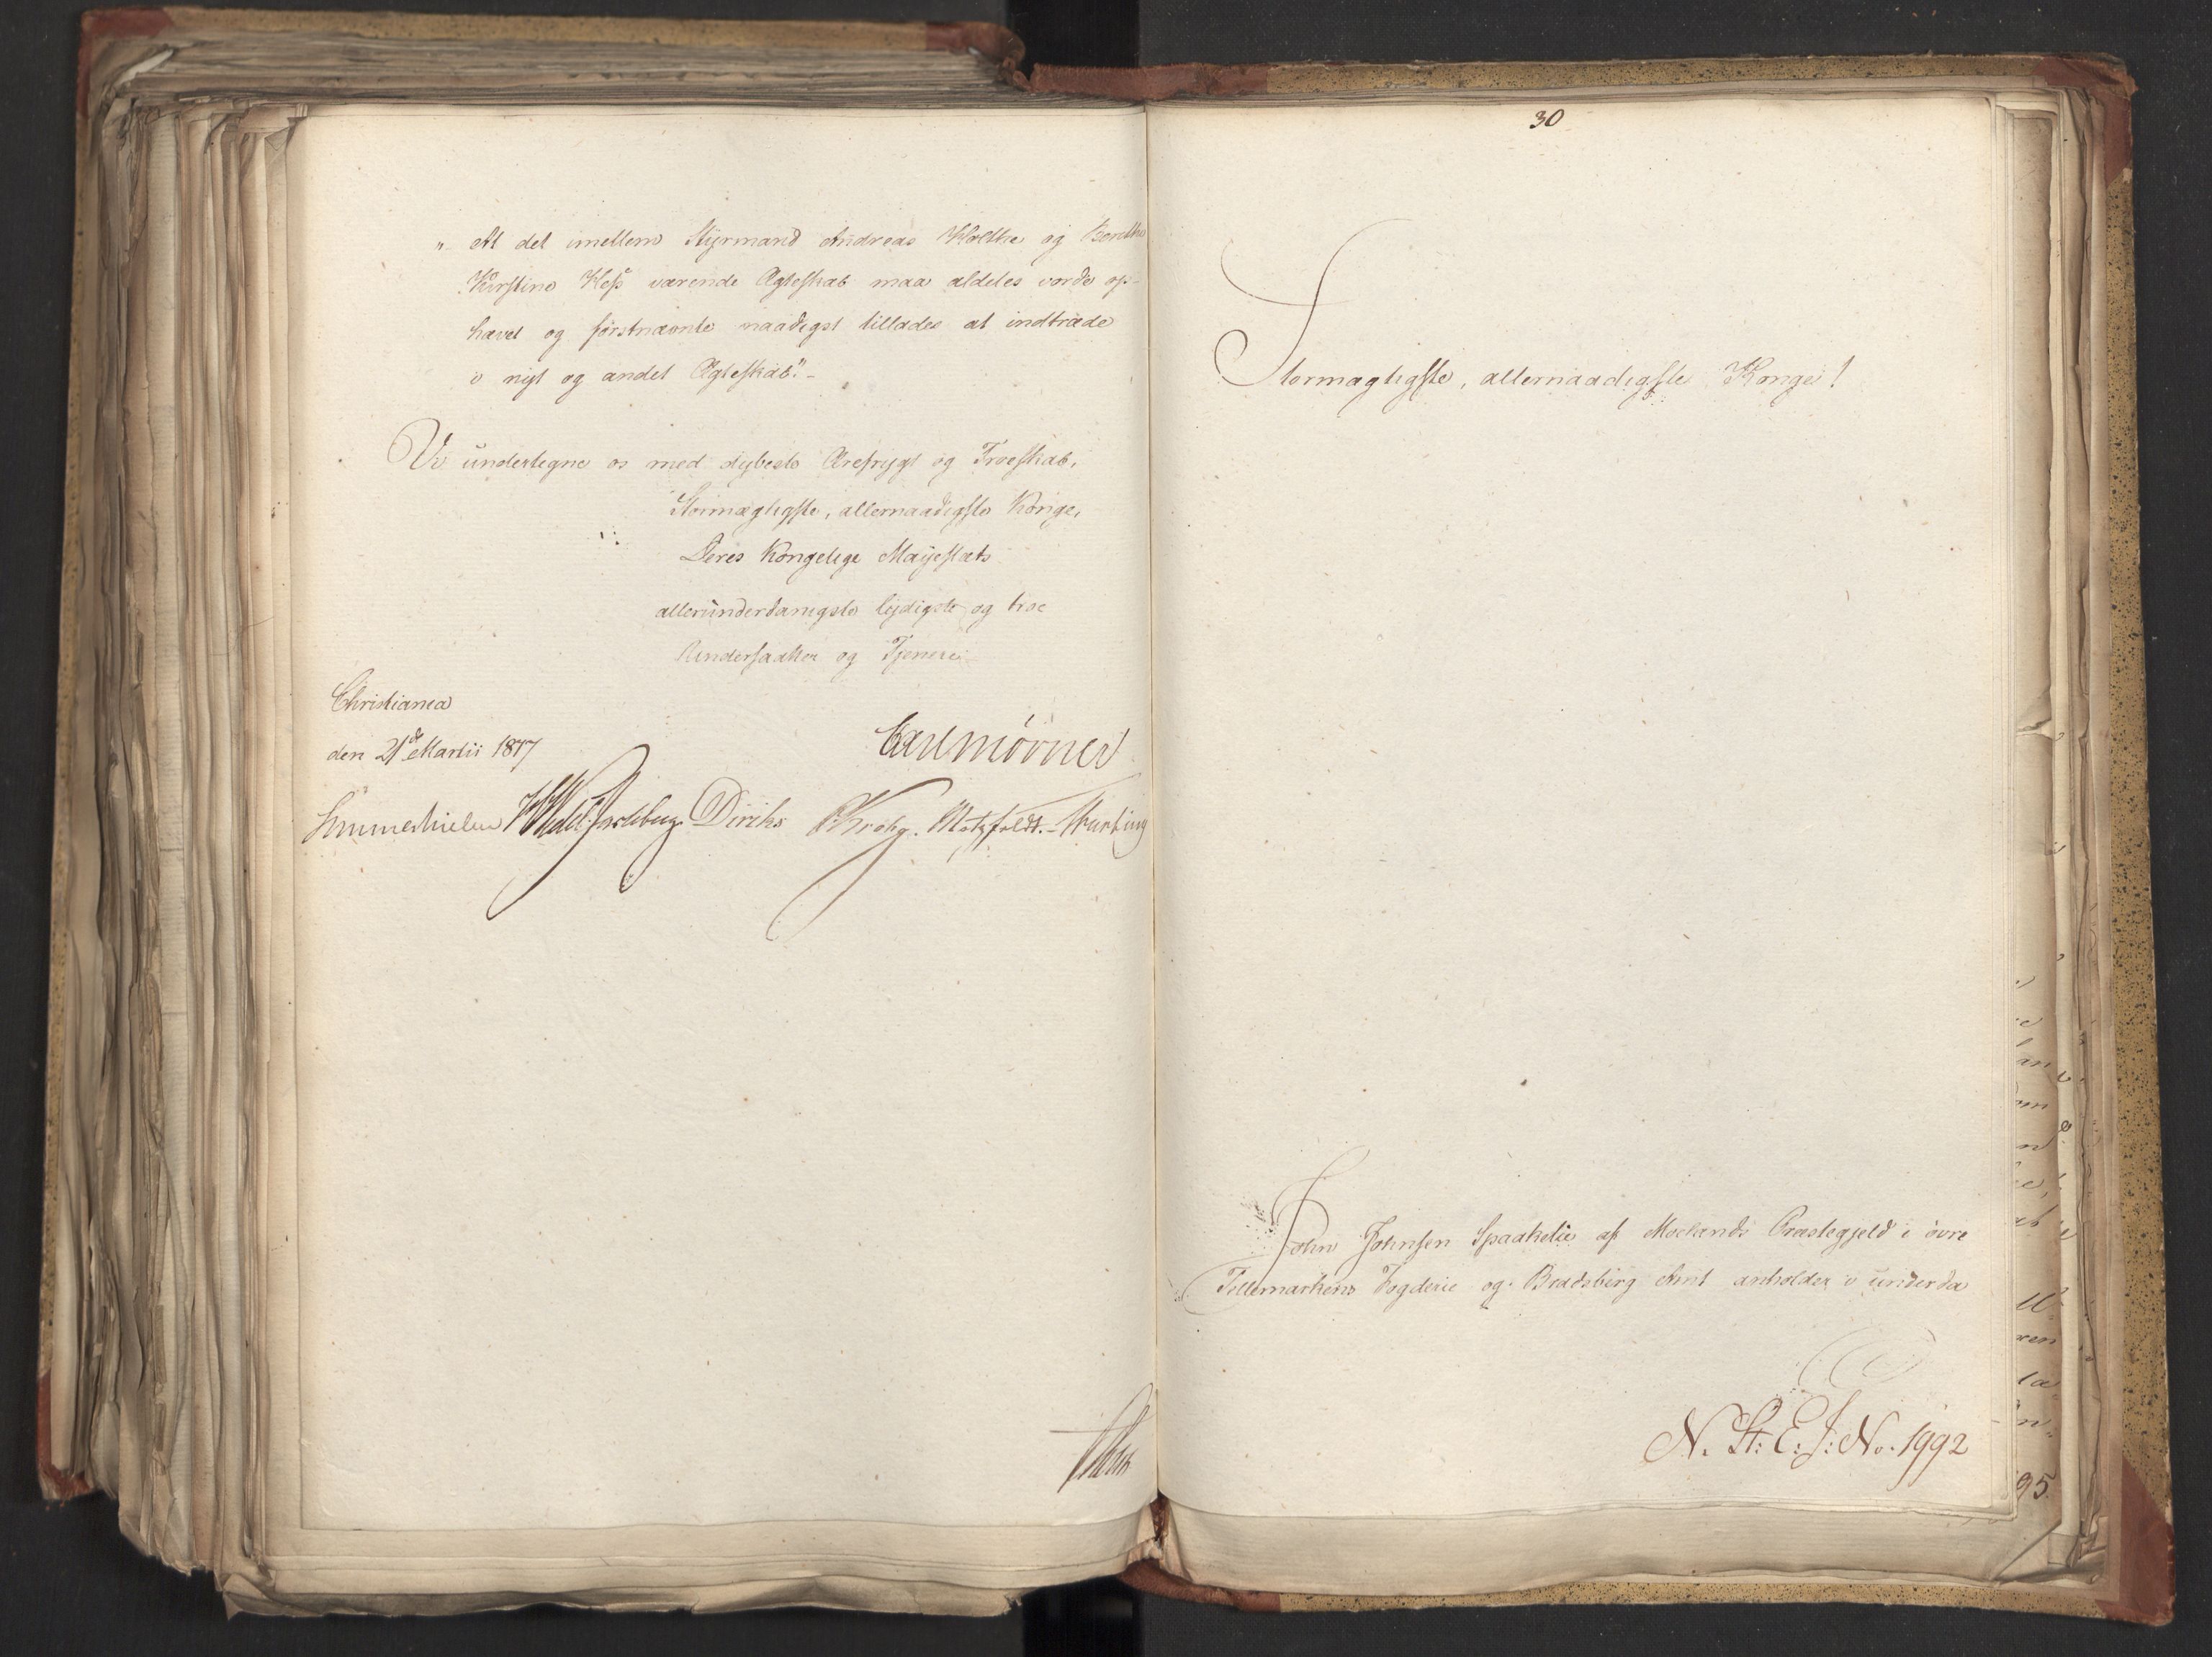 „ At det imellem Styrmand Andreas Holthe og Benthe
Kirstine Heß værende Ægteskab maa aldeles vorde op-
hævet og førstnævnte naadigst tillades at indtræde
i nyt og andet Ægteskab."-
Vi undertegne os med dybeste Ærefrygt og Troeskab,
Stormægtigste, allernaadigste Konge,
Deres Kongelige Majestæts
allerunderdanigste lydigste og troe
Undersaatter og Tjenere
Christiania
den 21de Martii 1817
Carl Mörner
Sommerhielm HWedel Jarlsberg Diriks CKrohg. Motzfeldt.
30
Stormægtigste, allernaadigste Konge!
John Johnsen Spaakelie af Moelands Præstegjeld i øvre
Tellemarkens Fogderie og Bradsberg Amt anholder i underda
N. St: E: J: No. 1992
95.